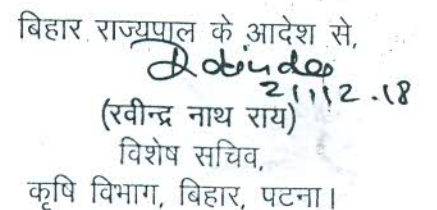 बिहार राज्यपाल के आदेश से,
21.12.18
(रवीन्द्र नाथ राय)
विशेष सचिव,
कृषि विभाग, बिहार, पटना।